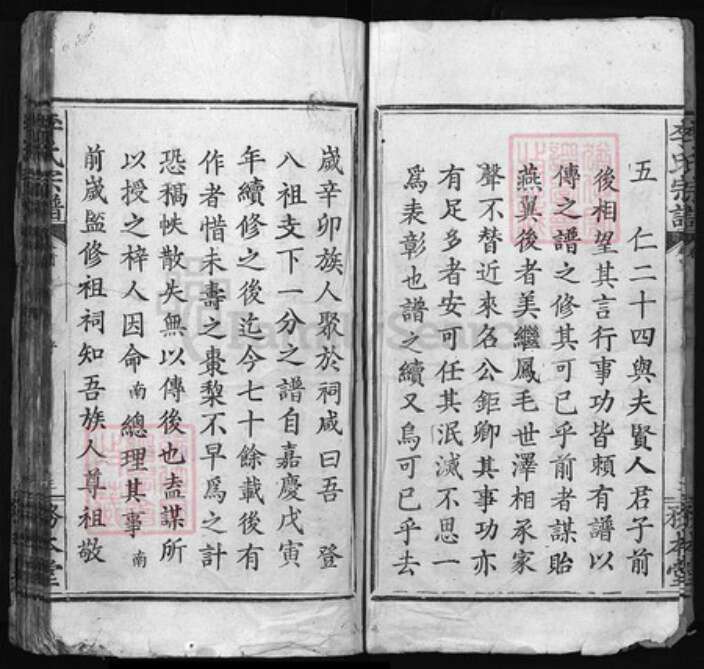 五　仁二十四與夫賢人君子前
後相望其言行事功皆賴有譜以
傳之譜之修其可已乎前者謀貽
燕翼後者美繼鳳毛世澤相承家
聲不替近來名公鉅卿其事功亦
有足多者安可任其泯滅不思一
爲表彰也譜之續又烏可已乎去
嵗辛卯族人聚於祠咸曰吾　登
八祖支下一分之譜自嘉慶戊寅
年續修之後迄今七十餘載後有
作者惜未壽之棗棃不早爲之計
恐稿帙散失無以傳後也盍謀所
以授之梓人因命南總理其事南
前嵗監修祖祠知吾族人尊祖敬
李氏宗譜
務本堂
李氏宗譜
務本堂
FamilySearch